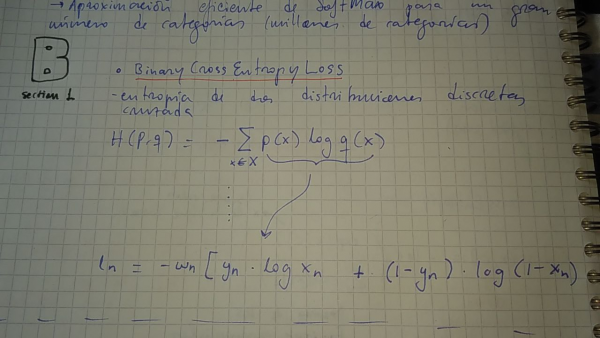 → Aproximación eficiente de SoftMax para un gran
número de categorías (millones de categorías)
B
section 1
• Binary Cross Entropy Loss
- entropía de dos distribuciones discretas
cruzada
H(p,q) = - ∑ p(x) log q(x)
x∈X
ln = -wn [ yn · log xn + (1-yn) · log (1-xn)